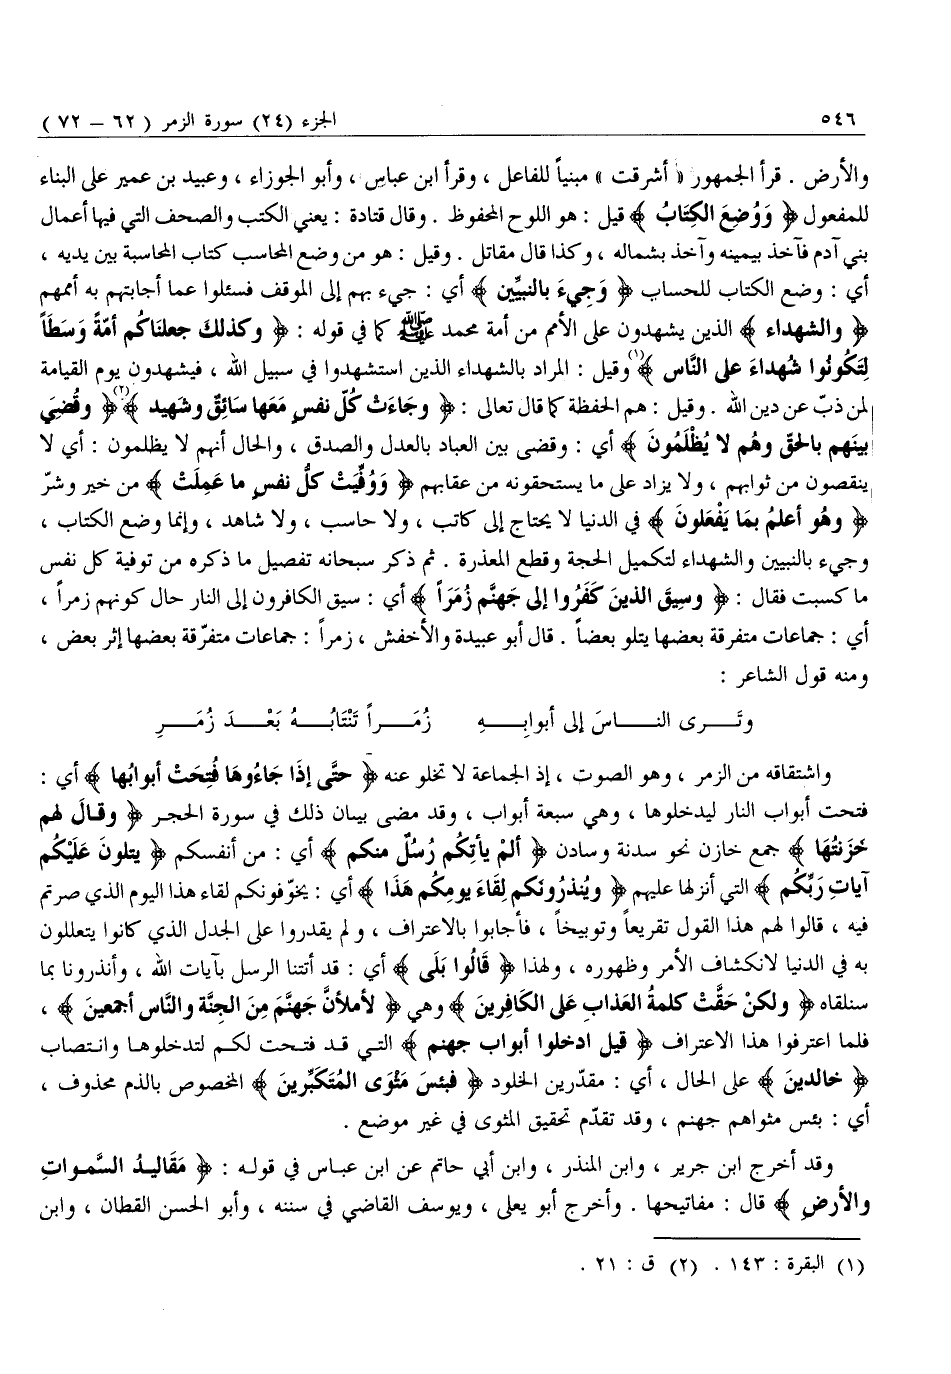 ٥٤٦ الجزء (٢٤) سورة الزمر ( ٦٢ – ٧٢ )
والأرض . قرأ الجمهور « أشرقت » مبنياً للفاعل ، وقرأ ابن عباس ، وأبو الجوزاء ، وعبيد بن عمير على البناء
للمفعول ﴿ وَوُضِعَ الكِتَابُ ﴾ قيل : هو اللوح المحفوظ . وقال قتادة : يعني الكتب والصحف التي فيها أعمال
بني آدم فآخذ بيمينه وآخذ بشماله ، وكذا قال مقاتل . وقيل : هو من وضع المحاسب كتاب المحاسبة بين يديه ،
أي : وضع الكتاب للحساب ﴿ وَجِيءَ بالنبيِّين ﴾ أي : جيء بهم إلى الموقف فسئلوا عما أجابتهم به أممهم
﴿ والشهداء ﴾ الذين يشهدون على الأمم من أمة محمد ﷺ كما في قوله : ﴿ وكذلكَ جعلنَاكُم أمّةً وَسَطَاً
لِتَكُونُوا شُهداءَ على النَّاس ﴾(١) وقيل : المراد بالشهداء الذين استشهدوا في سبيل الله ، فيشهدون يوم القيامة
لمن ذبّ عن دين الله . وقيل : هم الحفظة كما قال تعالى : ﴿ وجَاءَتْ كُلّ نفسٍ مَعَها سَائِقٌ وشَهيد ﴾(٢) ﴿ وقُضِيَ
بينَهم بالحقّ وهُم لا يُظْلَمُونَ ﴾ أي : وقضى بين العباد بالعدل والصدق ، والحال أنهم لا يظلمون : أي لا
ينقصون من ثوابهم ، ولا يزاد على ما يستحقونه من عقابهم ﴿ وَوُفِّيَتْ كلُّ نفسٍ ما عَمِلَتْ ﴾ من خير وشرّ
﴿ وهُو أعلمُ بمَا يَفْعَلونَ ﴾ في الدنيا لا يحتاج إلى كاتب ، ولا حاسب ، ولا شاهد ، وإنما وضع الكتاب ،
وجيء بالنبيين والشهداء لتكميل الحجة وقطع المعذرة . ثم ذكر سبحانه تفصيل ما ذكره من توفية كل نفس
ما كسبت فقال : ﴿ وسِيقَ الذينَ كَفَرُوا إلى جَهنَّم زُمَرَاً ﴾ أي : سيق الكافرون إلى النار حال كونهم زمراً ،
أي : جماعات متفرقة بعضها يتلو بعضاً . قال أبو عبيدة والأخفش ، زمراً : جماعات متفرّقة بعضها إثر بعض ،
ومنه قول الشاعر :
وتَـــرى النـــاسَ إلى أبوابِـــهِ زُمَـــراً تَنْتَابُـــهُ بَعْـــدَ زُمَـــرِ
واشتقاقه من الزمر ، وهو الصوت ، إذ الجماعة لا تخلو عنه ﴿ حتَّى إذَا جَاءُوهَا فُتِحَتْ أبوابُها ﴾ أي :
فتحت أبواب النار ليدخلوها ، وهي سبعة أبواب ، وقد مضى بيان ذلك في سورة الحجر ﴿ وقالَ لهم
خَزَنتُهَا ﴾ جمع خازن نحو سدنة وسادن ﴿ ألمْ يأتِكُم رُسُلٌ منكم ﴾ أي : من أنفسكم ﴿ يتلونَ عَلَيْكُم
آياتِ رَبِّكُم ﴾ التي أنزلها عليهم ﴿ ويُنذرُونَكُم لِقَاءَ يومِكُم هَذَا ﴾ أي : يخوّفونكم لقاء هذا اليوم الذي صرتم
فيه ، قالوا لهم هذا القول تقريعاً وتوبيخاً ، فأجابوا بالاعتراف ، ولم يقدروا على الجدل الذي كانوا يتعللون
به في الدنيا لانكشاف الأمر وظهوره ، ولهذا ﴿ قَالُوا بَلَى ﴾ أي : قد أتتنا الرسل بآيات الله ، وأنذرونا بما
سنلقاه ﴿ ولكنْ حَقَّتْ كلمةُ العَذابِ على الكَافِرينَ ﴾ وهي ﴿ لأملأنَّ جَهنَّمَ مِنَ الجِنَّة والنَّاس أجمَعينَ ﴾ ،
فلما اعترفوا هذا الاعتراف ﴿ قيل ادخلوا أبواب جهنم ﴾ التي قد فتحت لكم لتدخلوها وانتصاب
﴿ خالدينَ ﴾ على الحال ، أي : مقدّرين الخلود ﴿ فبئسَ مَثْوَى المُتَكَبِّرينَ ﴾ المخصوص بالذم محذوف ،
أي : بئس مثواهم جهنم ، وقد تقدّم تحقيق المثوى في غير موضع .
وقد أخرج ابن جرير ، وابن المنذر ، وابن أبي حاتم عن ابن عباس في قوله : ﴿ مَقَاليدُ السَّمواتِ
والأرضِ ﴾ قال : مفاتيحها . وأخرج أبو يعلى ، ويوسف القاضي في سننه ، وأبو الحسن القطان ، وابن
(١) البقرة : ١٤٣ . (٢) ق : ٢١ .